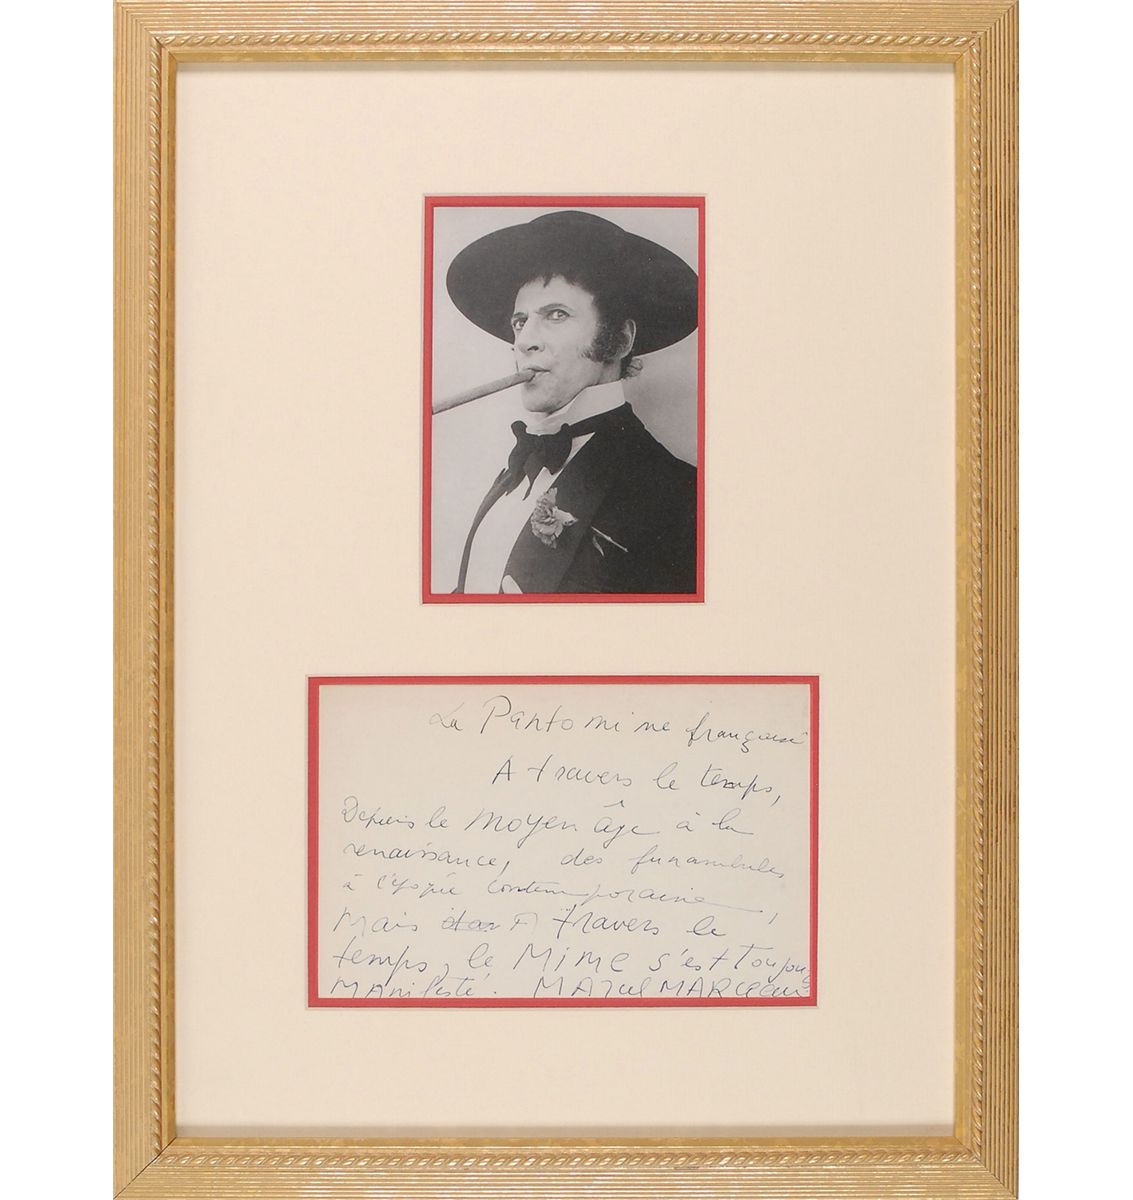 La Pantomime française
A travers le temps,
Depuis le Moyen âge à la
renaissance, des funambules
à l'époque contemporaine,
Mais à travers le
temps, le MIME s'est toujours
Manifesté. Marcel MARCeau